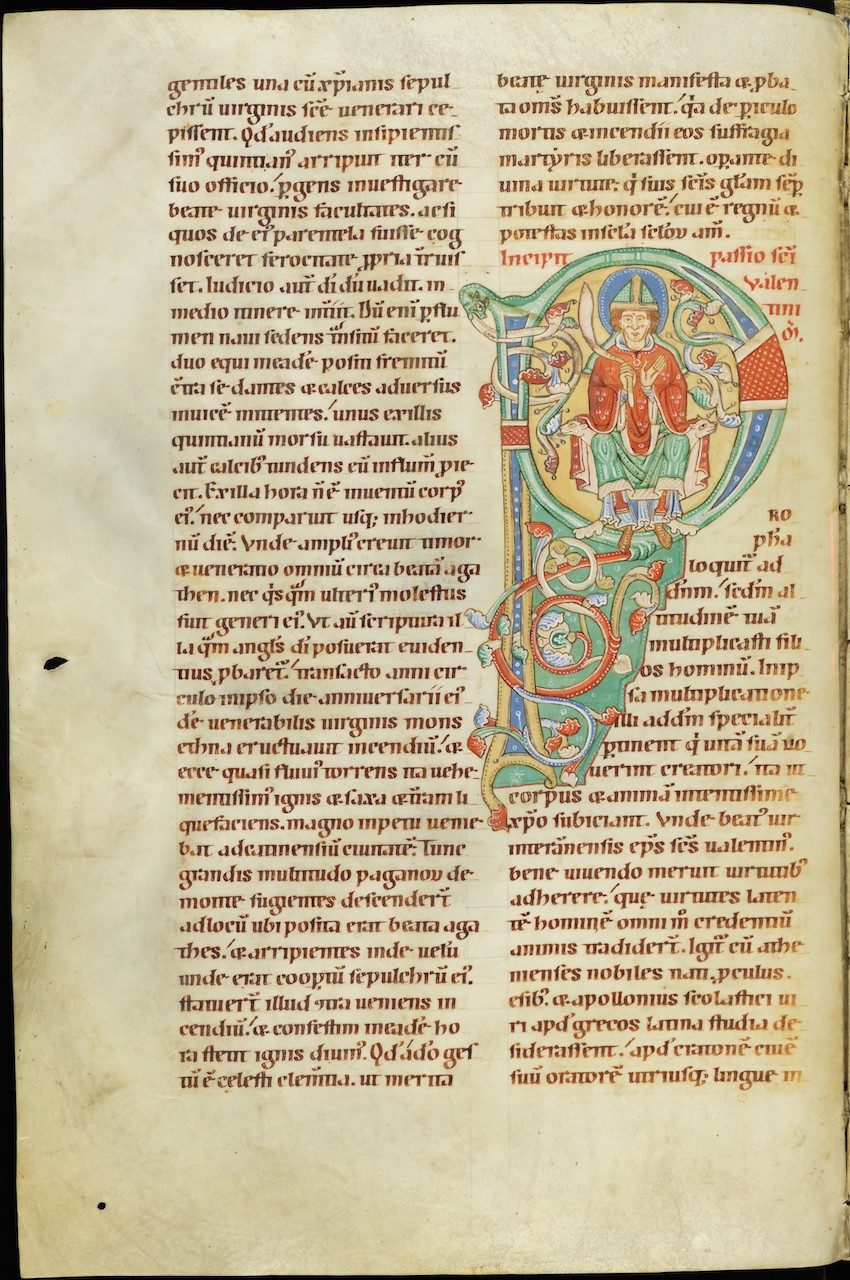 gentiles una cū xp̄ianis sepul
chrū uirginis sc̄e uenerari ce-
pissent. Qd̓ audiens insipientis
sim᷒ quintian᷒ arripuit iter cū
suo officio. ꝑgens inuestigare
beate uirginis facultates. ac si
quos de ei᷒ parentela fuisse cog
nosceret ferocitate ꝓpria tr̄uis
set. Iudicio aut̄ di dū uadit. in
medio itinere int̄iit. Dū eni ꝑ flu
men naui sedens t̄nsitū faceret.
duo equi in eadē positi fremitū
c̄tra se dantes & calces aduersus
inuicē mittentes. unus ex illis
quintianū morsu uastauit. alius
aut̄ calcib᷒ tundens eū in flum̄ ꝓie-
cit. Ex illa hora ñ ē inuentū corp᷒
ei᷒. nec comparuit usq; in hodier-
nū diē. Vnde ampli᷒ creuit timor
& ueneratio omniū circa beatā aga
then. nec q̇s q̄m ulteri᷒ molestus
fuit generi ei᷒. Vt aū scriptura il
la q̄m angl̄s di posuerat euiden
tius ꝓbaret᷒. transacto anni cir-
culo in ipso die anniuersarii ei᷒
dē uenerabilis uirginis mons
ethna eructuauit incendiū. &
ecce quasi fluui᷒ torrens ita uehe-
mentissim᷒ ignis & saxa & t̄ram li
quefaciens. magno inpetu uenie-
bat ad catinensiū ciuitatē. Tunc
grandis multitudo paganoꝝ de
monte fugientes descender̄t
ad locū ubi posita erat beata aga
thes. & arripientes inde uelū
unde erat coop̄tū sepulchrū ei᷒.
statuer̄t illud ꝯtra ueniens in
cendiū. & confestim in eadē ho
ra stetit ignis diuin᷒. Qd̓ ad̓o ges
tū ē celesti clem̄tia. ut merita
beate uirginis manifesta & ꝓba
ta om̄s habuissent. q̓a de ꝑiculo
mortis & incendii eos suffragia
martyris liberassent. oꝑante di
uina uirtute. q̓ suis sc̄is gl̄am sēꝑ
tribuit & honorē. cui ē regnū &
potestas in scl̄a scl̄oꝝ am̄.
Incipit passio sc̄i
Valen
tini
ep̄i.
PRO
pħa
loquit᷒ ad
dn̄m. sedm̄ al
titudinē tuā
multiplicasti fili
os hominū. In ip
sa multiplicatione
illi ad dm̄ specialit̄
ꝑtinent q̓ unā suā uo
uerint creatori. ita ut
corpus & animā intentissime
xp̄o subiciant. Vnde beat᷒ uir
interamnensis ep̄s sc̄s ualentin᷒.
bene uiuendo meruit uirtutib᷒
adherere. que uirtutes laten
tē hominē omni m̄ credentiū
animis tradider̄t. Igit᷒ cū athe
nienses nobiles nati. ꝓculus.
efib᷒. & apollonius scolastici ui
ri apd̓ grecos latina studia de
siderassent. apd̓ cratonē ciuē
suū oratorē utriusq; lingue in